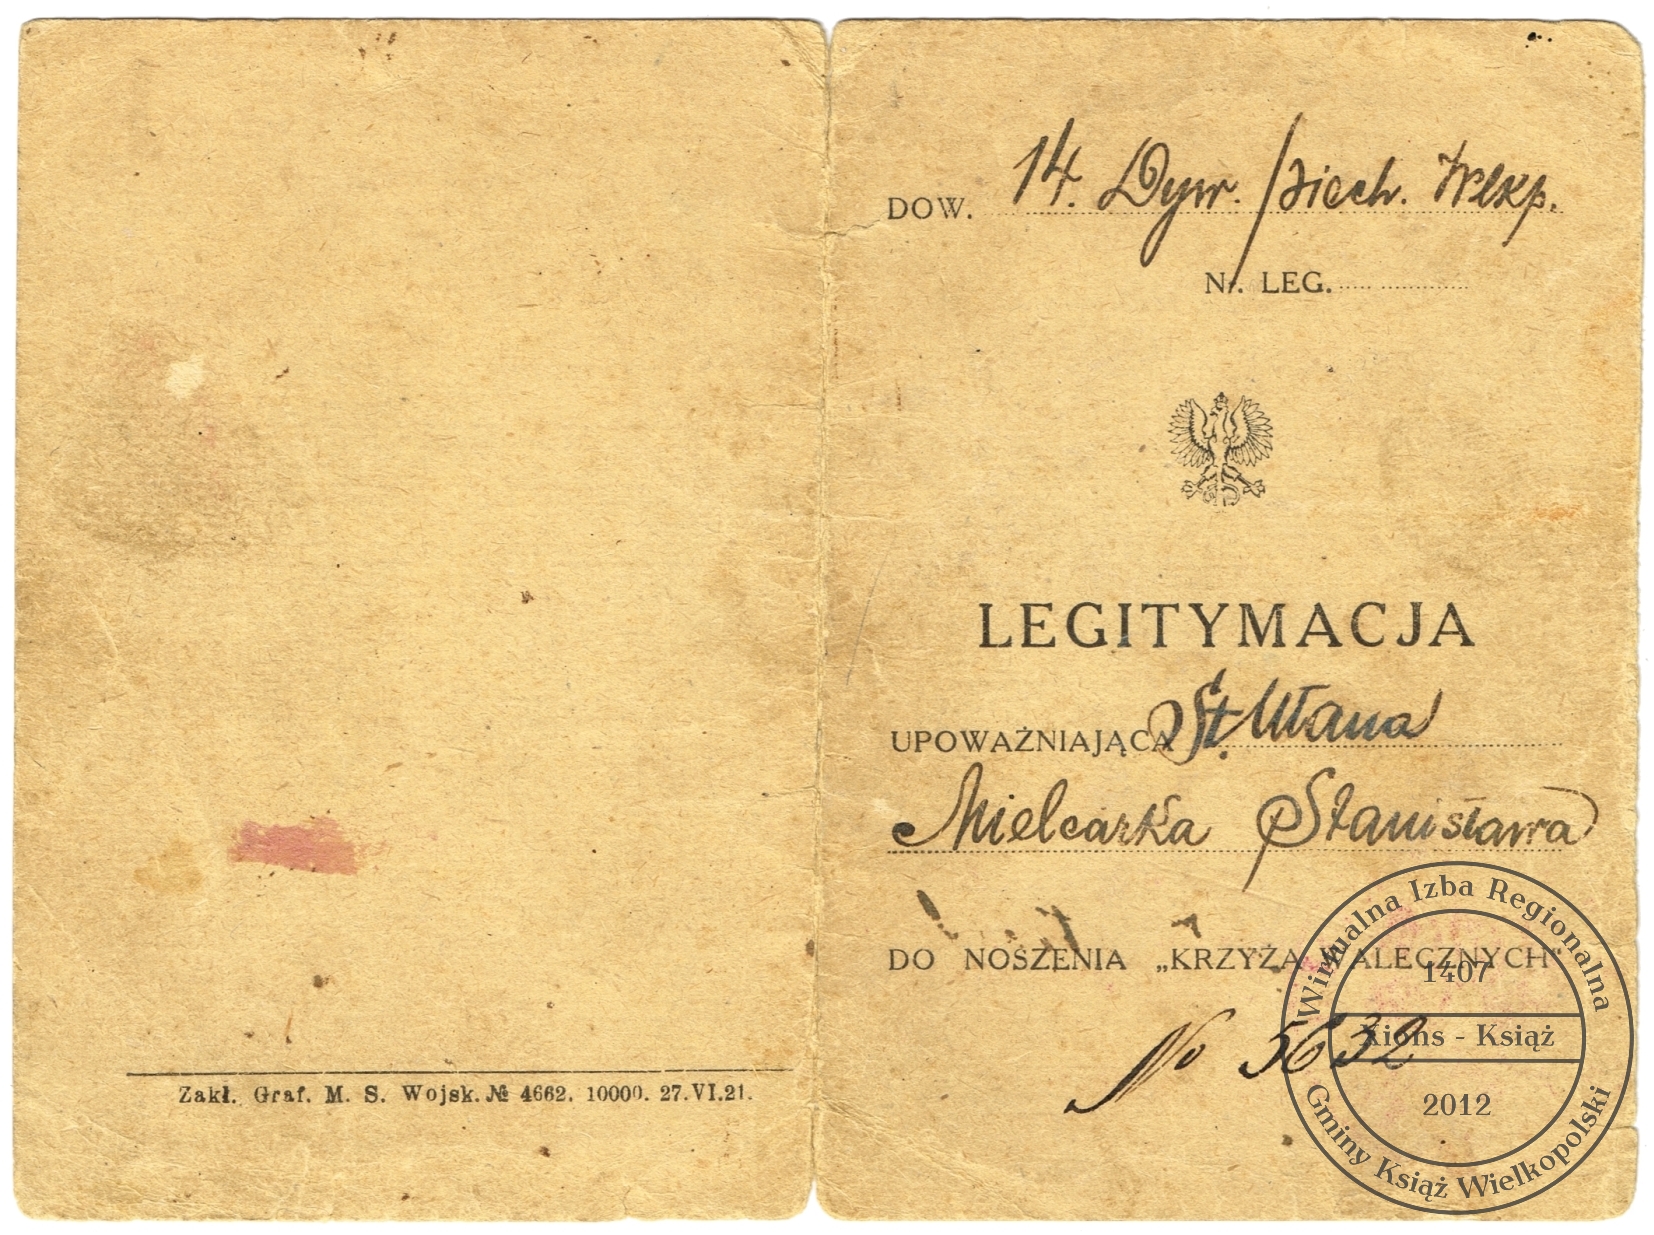 Zakł. Graf. M. S. Wojsk. № 4662. 10000. 27.VI.21.
DOW. 14. Dyw. Piech. Wlkp.
Nr. LEG.
LEGITYMACJA
UPOWAŻNIAJĄCA St. Ułana
Mielcarka Stanisława
DO NOSZENIA „KRZYŻA WALECZNYCH“
No 5632
Wirtualna Izba Regionalna
1407
Xions - Książ
2012
Gminy Książ Wielkopolski